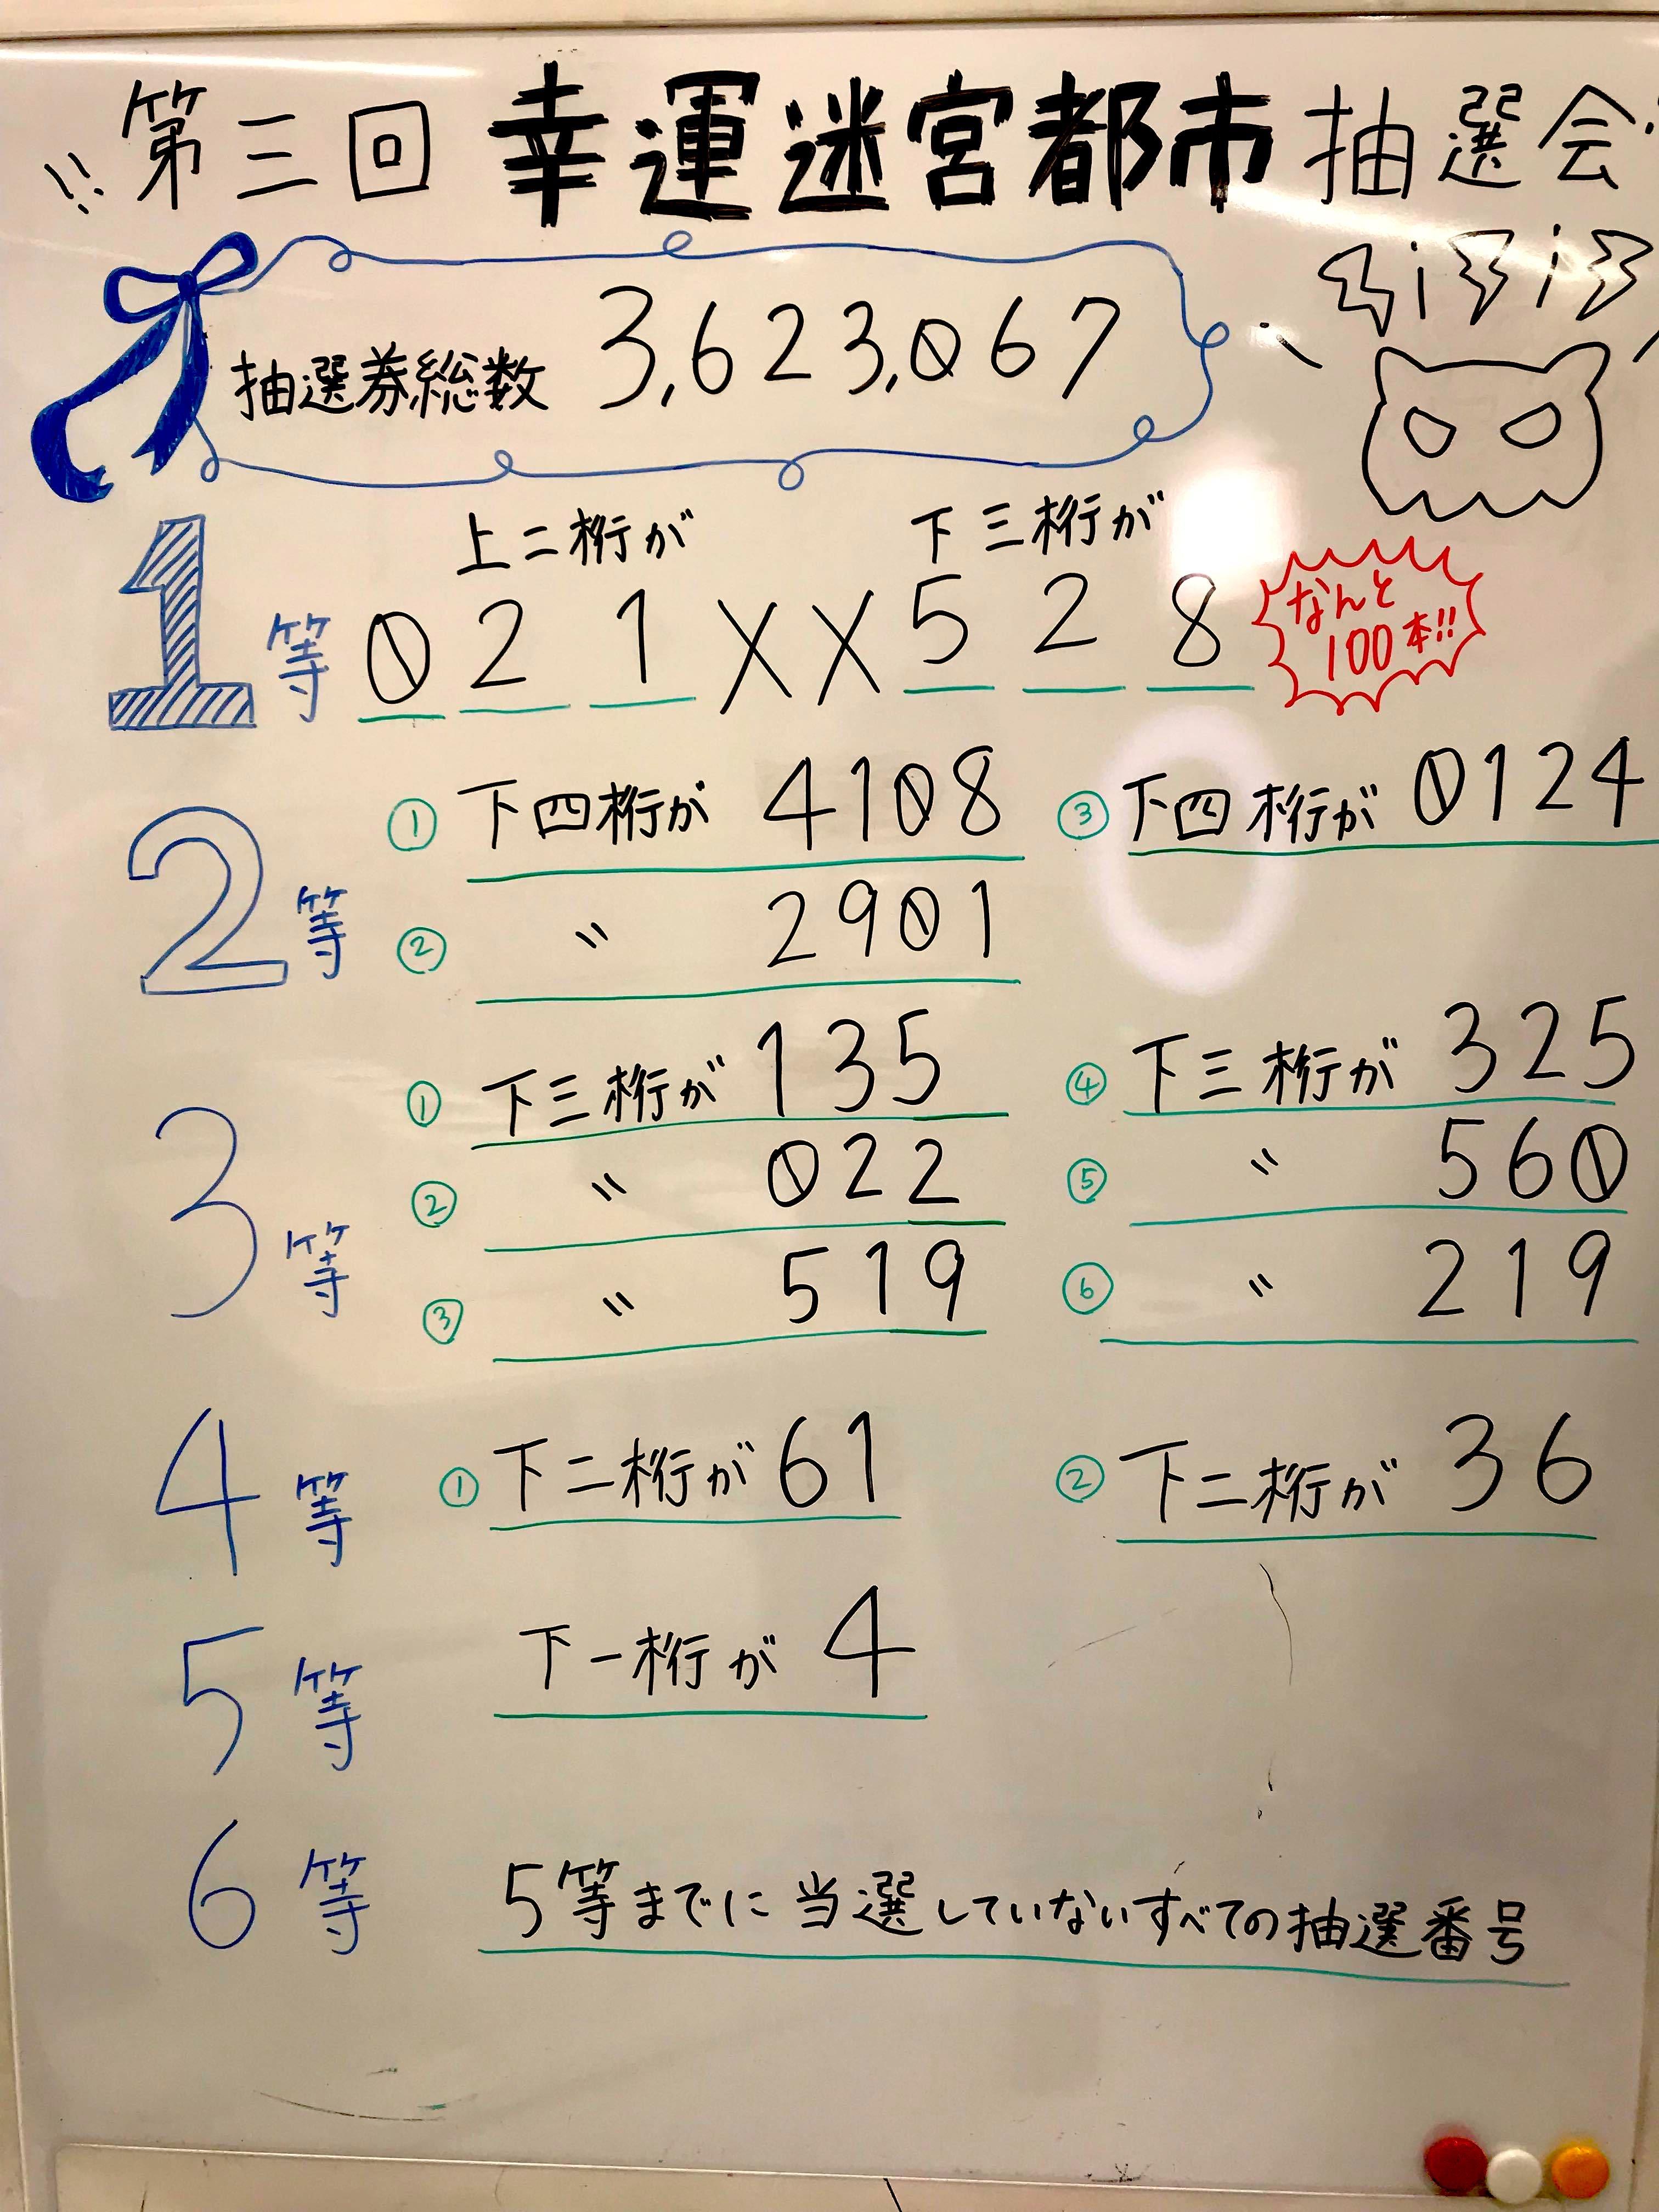 第三回 幸運迷宮都市 抽選会
抽選券総数 3,623,067
上二桁が 下三桁が
1等 021XX528 なんと100本!!
2等
① 下四桁が 4108 ③ 下四桁が 0124
② 〃 2901
3等
① 下三桁が 135 ④ 下三桁が 325
② 〃 022 ⑤ 〃 560
③ 〃 519 ⑥ 〃 219
4等 ① 下二桁が 61 ② 下二桁が 36
5等 下一桁が 4
6等 5等までに当選していないすべての抽選番号